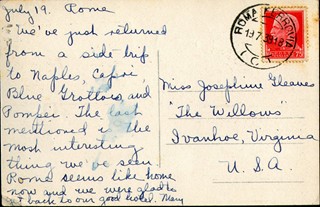 July 19. Rome
We've just returned
from a side trip
to Naples, Capri
Blue Grottoes and
Pompei. The last
mentioned is the
most interesting
thing we've seen.
Rome seems like home
now and we were glad to
get back to our good hotel. Mary
ROMA FERROVIA
Miss Josephine Gleaves
"The Willows"
Ivanhoe, Virginia
U. S. A.